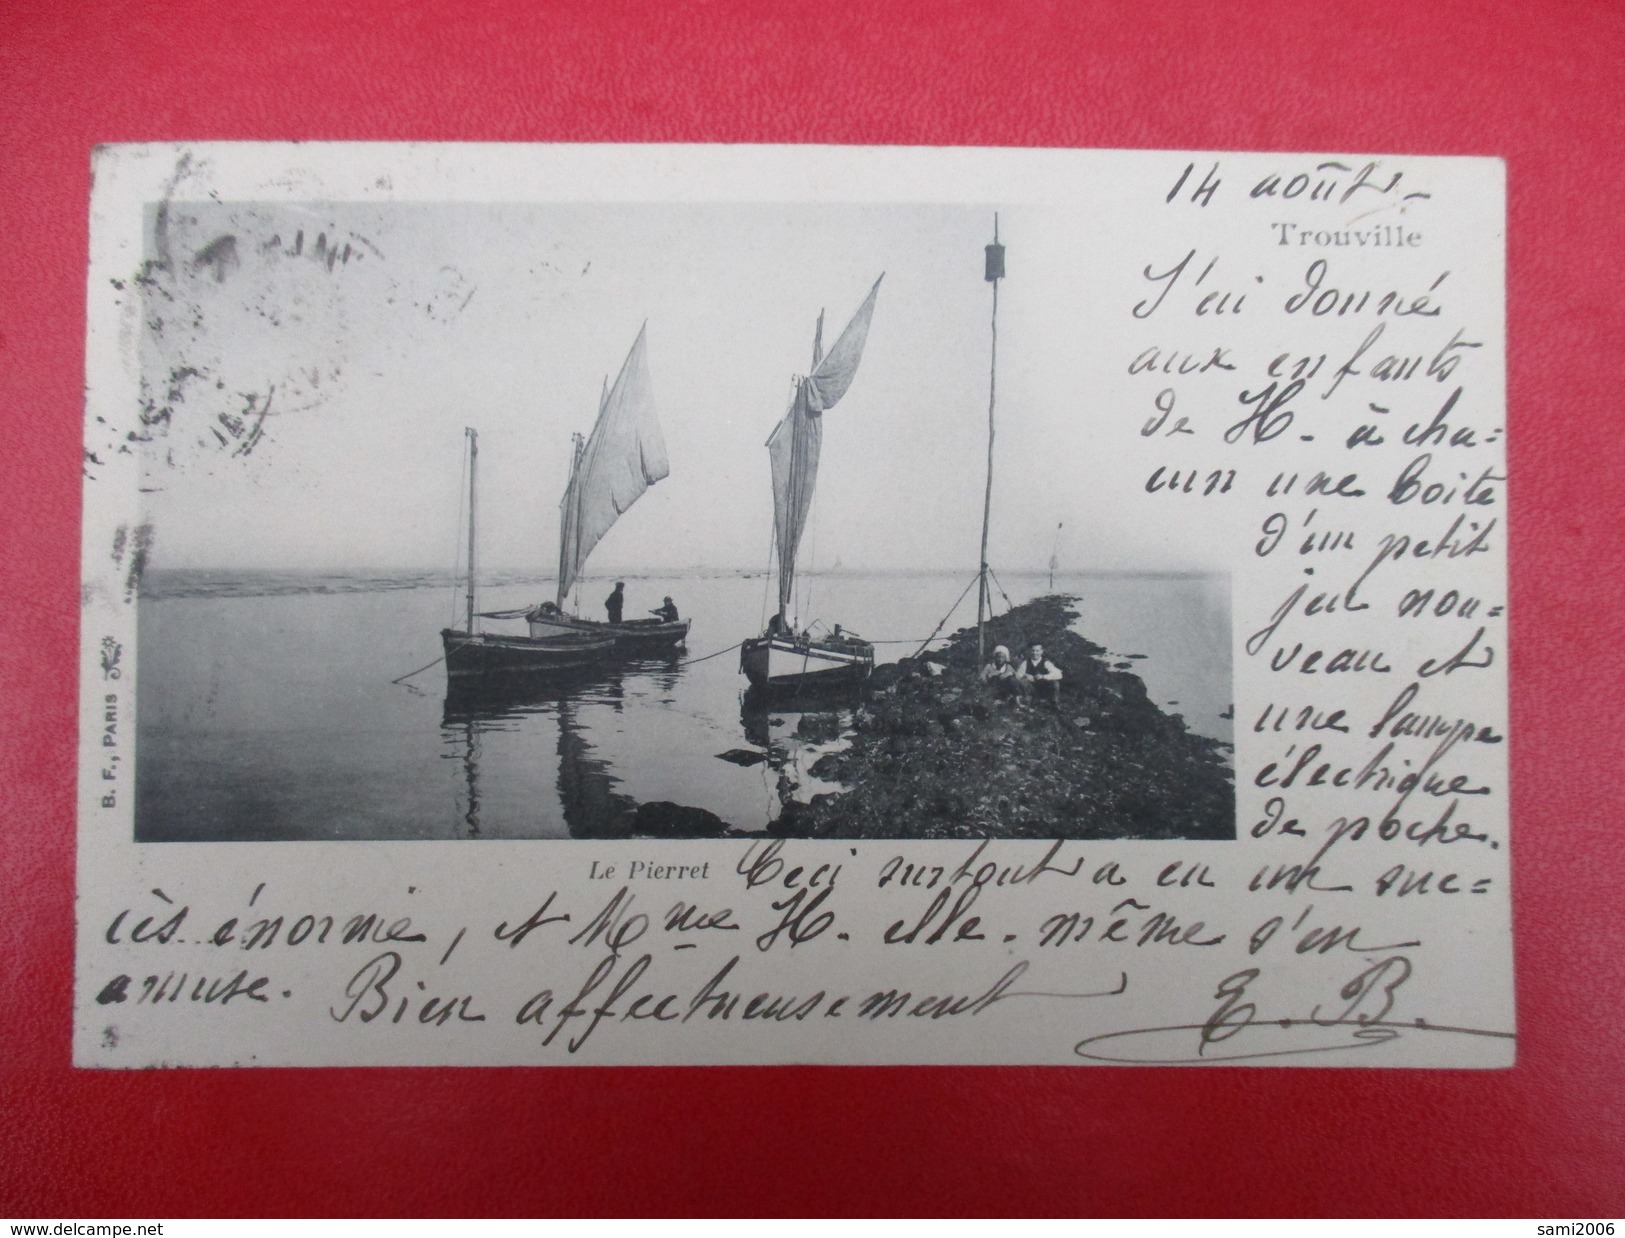 14 août
Trouville
J'ai donné
aux enfants
de H. à cha=
cun une boite
d'un petit
jeu nou=
veau et
une lampe
électrique
de poche.
B. F., PARIS
Le Pierret
Ceci surtout a eu un suc=
cès énorme, et Mme H. elle-même s'en
amuse. Bien affectueusement
E. B.
www.delcampe.net
sami2006